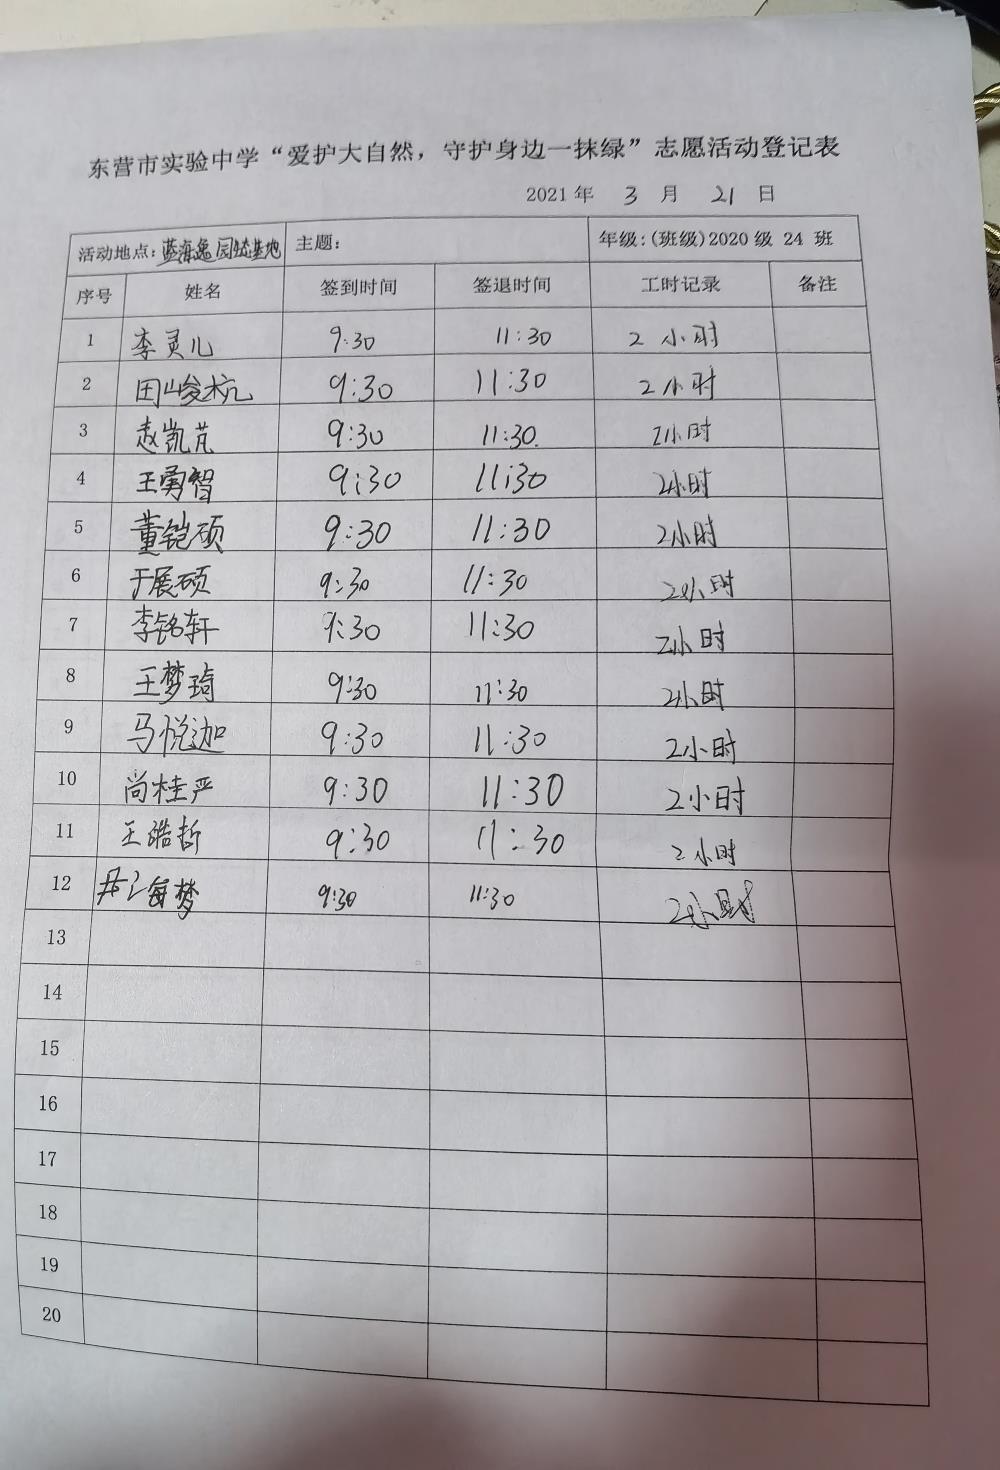 东营市实验中学“爱护大自然，守护身边一抹绿”志愿活动登记表
2021年 3 月 21 日
活动地点：蓝海逸园 基地 主题： 年级：(班级)2020级 24 班
序号 姓名 签到时间 签退时间 工时记录 备注
1 李灵儿 9:30 11:30 2 小时
2 田峻杭 9:30 11:30 2小时
3 赵凯芃 9:30 11:30. 2小时
4 王勇智 9:30 11:30 2小时
5 董铠硕 9:30 11:30 2小时
6 于展硕 9:30 11:30 2小时
7 李铭轩 9:30 11:30 2小时
8 王梦琦 9:30 11:30 2小时
9 马悦迦 9:30 11:30 2小时
10 尚桂严 9:30 11:30 2小时
11 王皓哲 9:30 11:30 2小时
12 梦 9:30 11:30 2小时
13
14
15
16
17
18
19
20